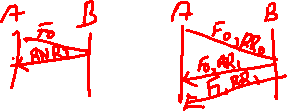 A B
F0
RNR0
A B
F0, RR0
F0, RR1
F1, RR1